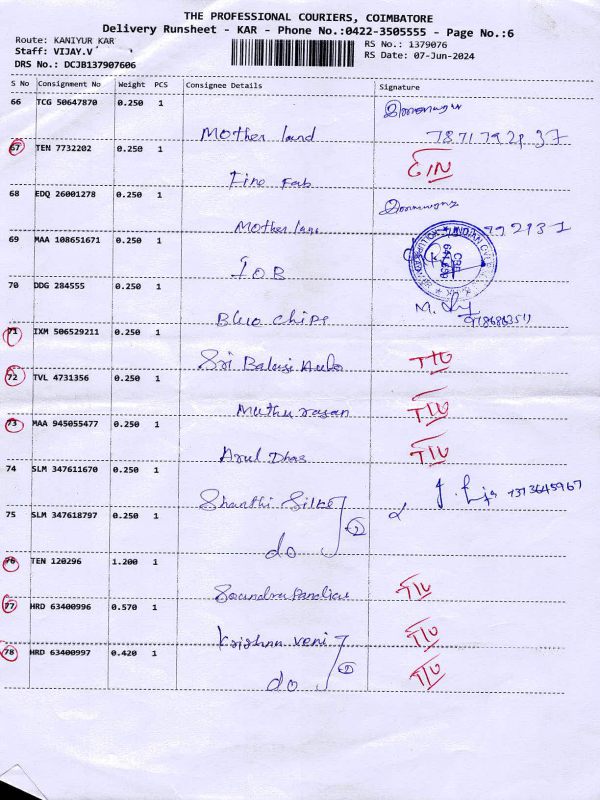 THE PROFESSIONAL COURIERS, COIMBATORE
Delivery Runsheet - KAR - Phone No.:0422-3505555 - Page No.:6
Route: KANIYUR KAR
RS No.: 1379076
Staff: VIJAY.V
RS Date: 07-Jun-2024
DRS No.: DCJB137907606
S No Consignment No Weight PCS Consignee Details Signature
66 TCG 50647870 0.250 1
Mother land
67 TEN 7732202 0.250 1
Fine Fab
68 EDQ 26001278 0.250 1
Mother
69 MAA 108651671 0.250 1
IOB
70 DDG 284555 0.250 1
Blue Chips
71 IXM 506529211 0.250 1
Sri Balaji Auto T/U
72 TVL 4731356 0.250 1
Muthu rasan T/U
73 MAA 945055477 0.250 1
Arul Dhas T/U
74 SLM 347611670 0.250 1
Shanthi Silks
75 SLM 347618797 0.250 1
do 2
76 TEN 120296 1.200 1
T/U
77 HRD 63400996 0.570 1
Krishna veni T/U
78 HRD 63400997 0.420 1
do 2 T/U